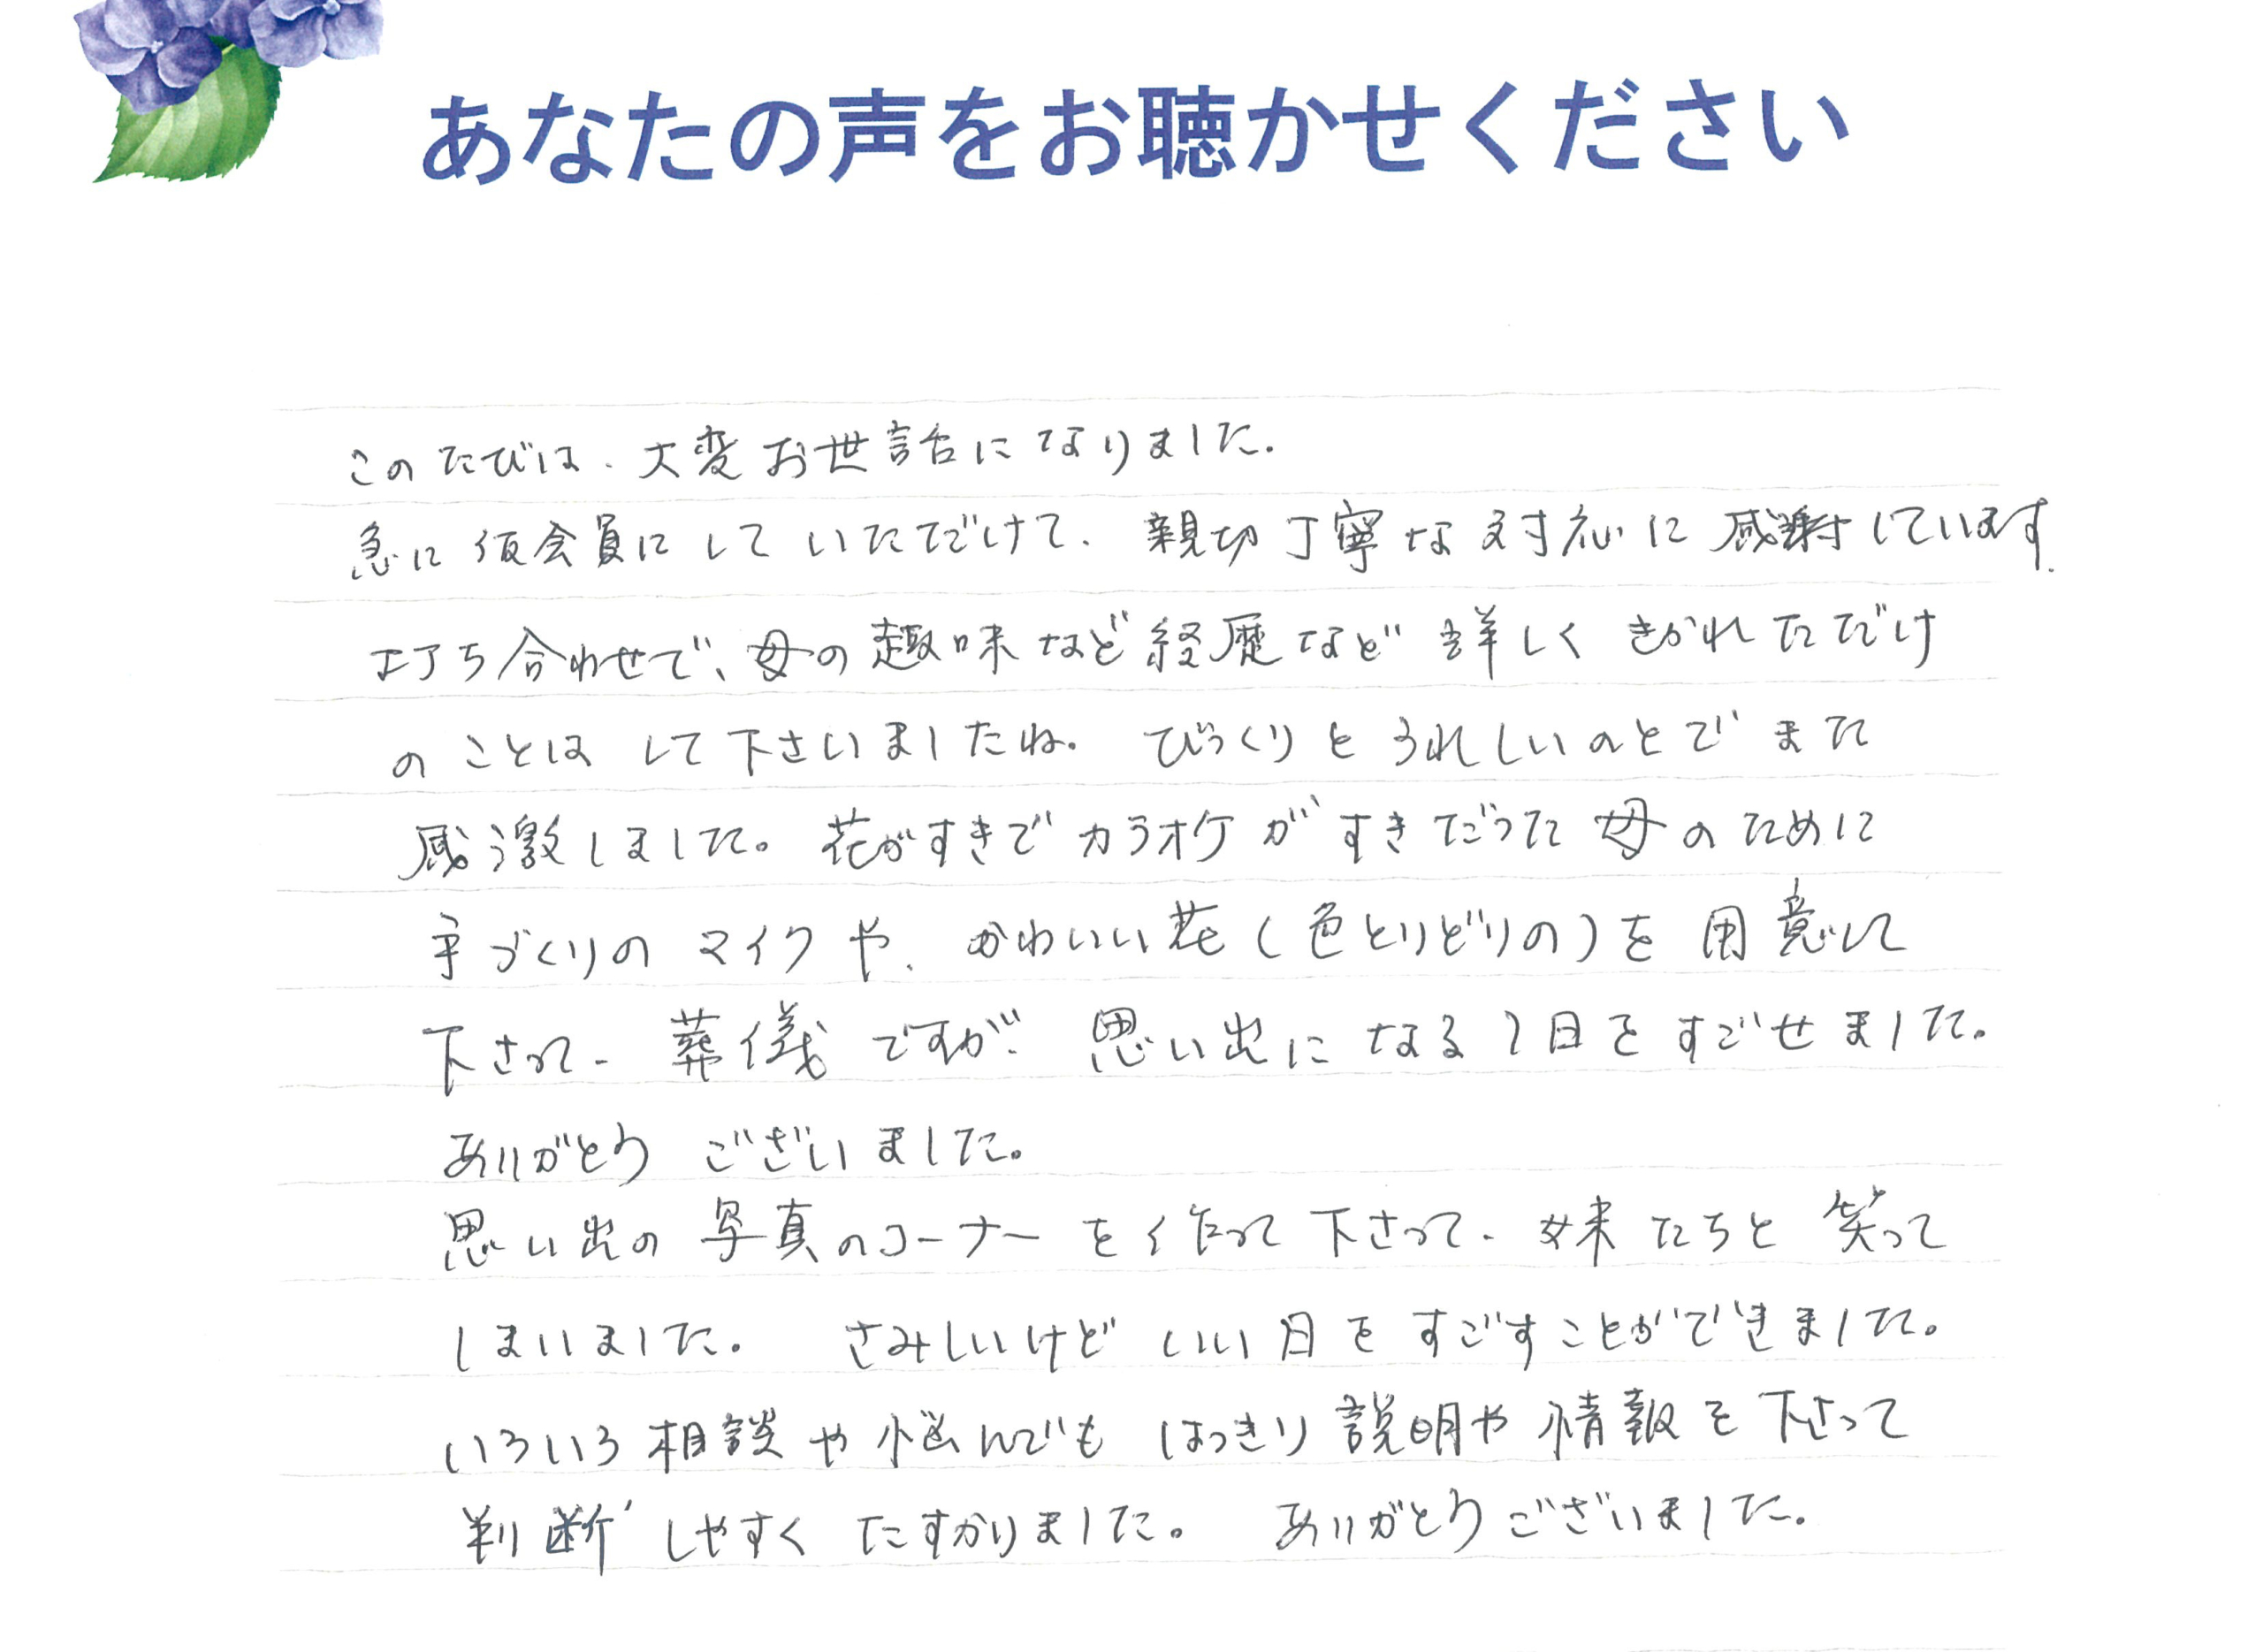 あなたの声をお聴かせください
このたびは、大変お世話になりました。
急に仮会員にして いただけて、親切丁寧な対応に感謝しています。
打ち合わせで、母の趣味など経歴など 詳しく きかれ ただだけ
のことは して下さいましたね。 びっくりと うれしいのとで また
感激しました。花がすきで カラオケが すきだった 母のために
手づくりの マイクや、かわいい花(色とりどりの)を 用意して
下さって、葬儀 ですが、思い出に なる1日を すごせました。
ありがとう ございました。
思い出の 写真のコーナーを作って 下さって、妹たちと 笑って
しまいました。 さみしいけど いい日を すごすことができました。
いろいろ相談や悩んでも はっきり 説明や情報を下さって
判断しやすく たすかりました。 ありがとうございました。